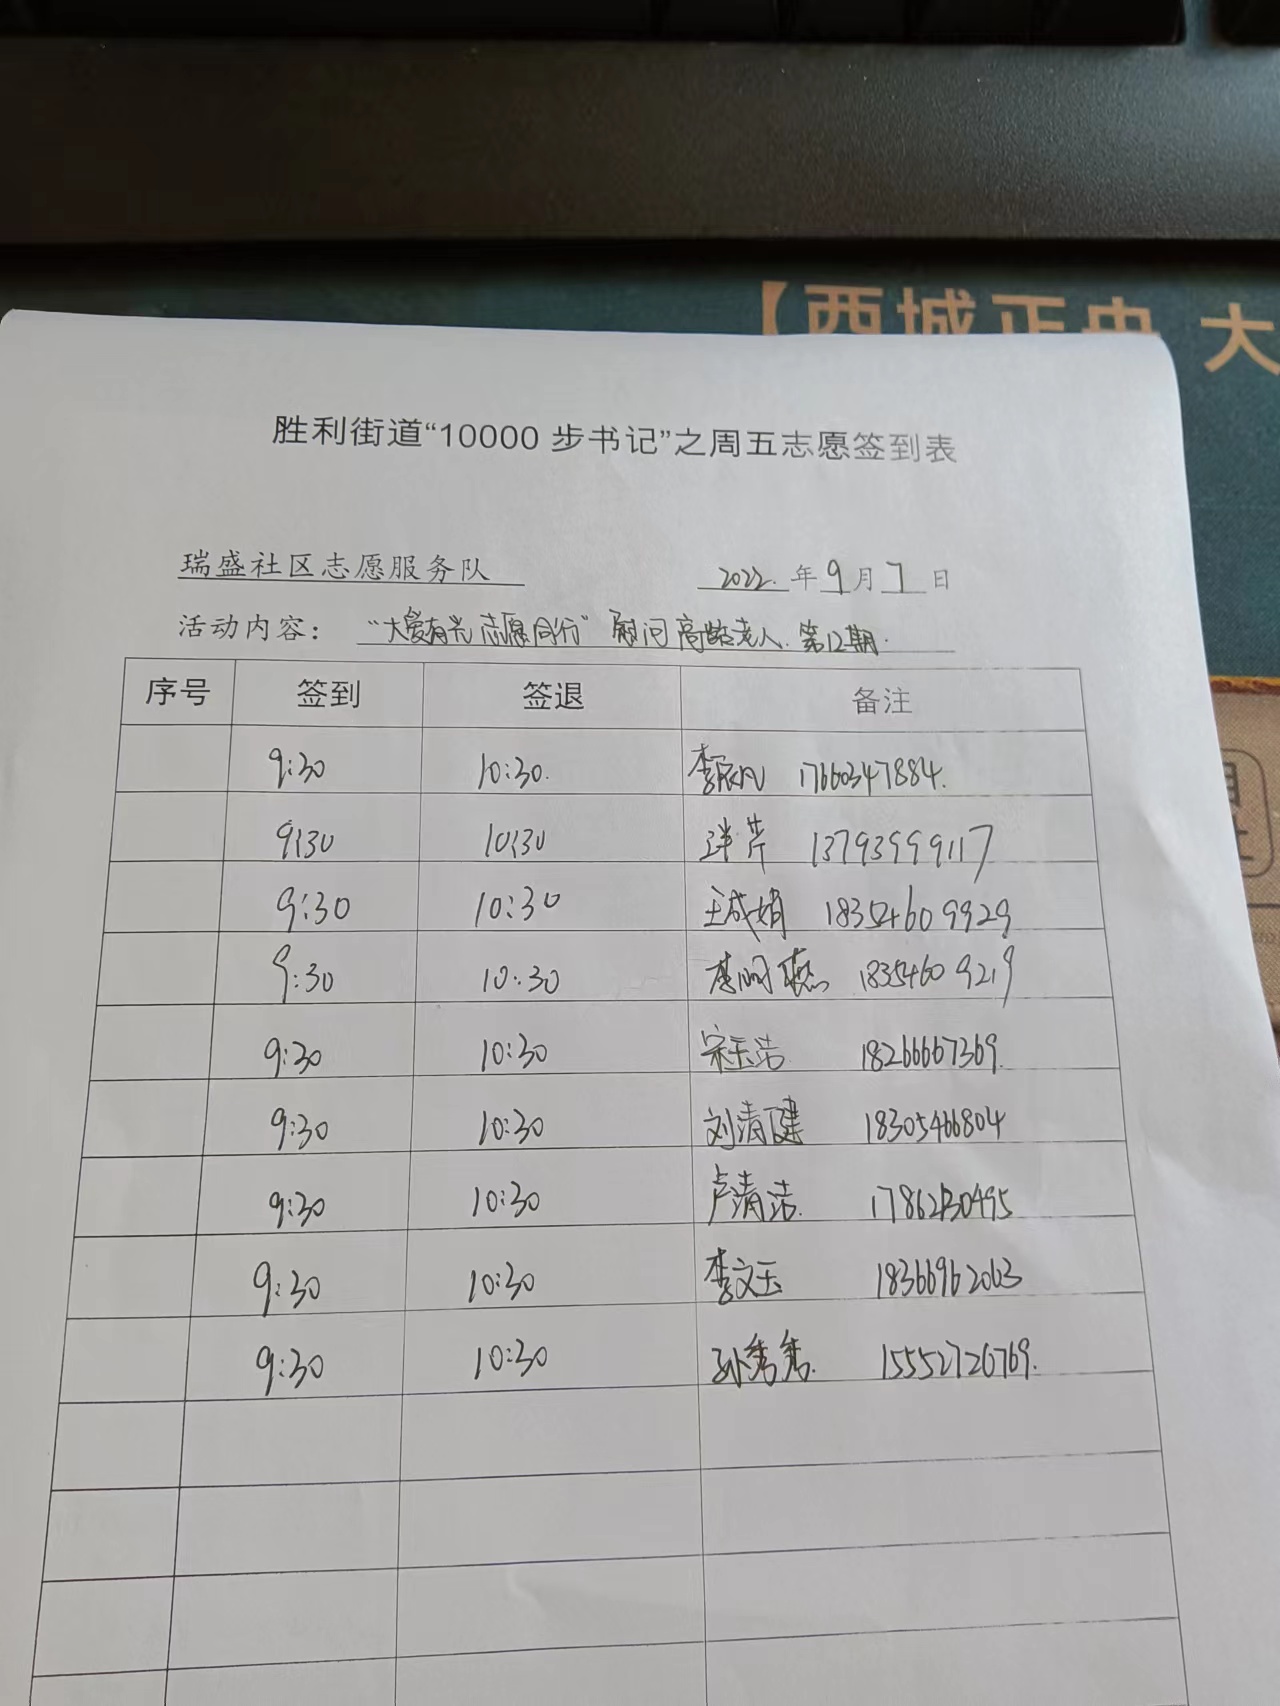 【西城正央 大
胜利街道“10000 步书记”之周五志愿签到表
瑞盛社区志愿服务队 2022. 年 9 月 7 日
活动内容： “大爱有光 志愿同行” 慰问高龄老人. 第12期.
序号 签到 签退 备注
9:30 10:30. 李辰凡 17660347884.
9:30 10:30 芹 13793999117
9:30 10:30 王成娟 18354609929
9:30 10:30 李 18354609219
9:30 10:30 宋玉洁 18266667369.
9:30 10:30 刘清健 18305466804
9:30 10:30 卢清洁. 17862130495
9:30 10:30 李文玉 18366962063
9:30 10:30 孙秀秀. 15552726769.